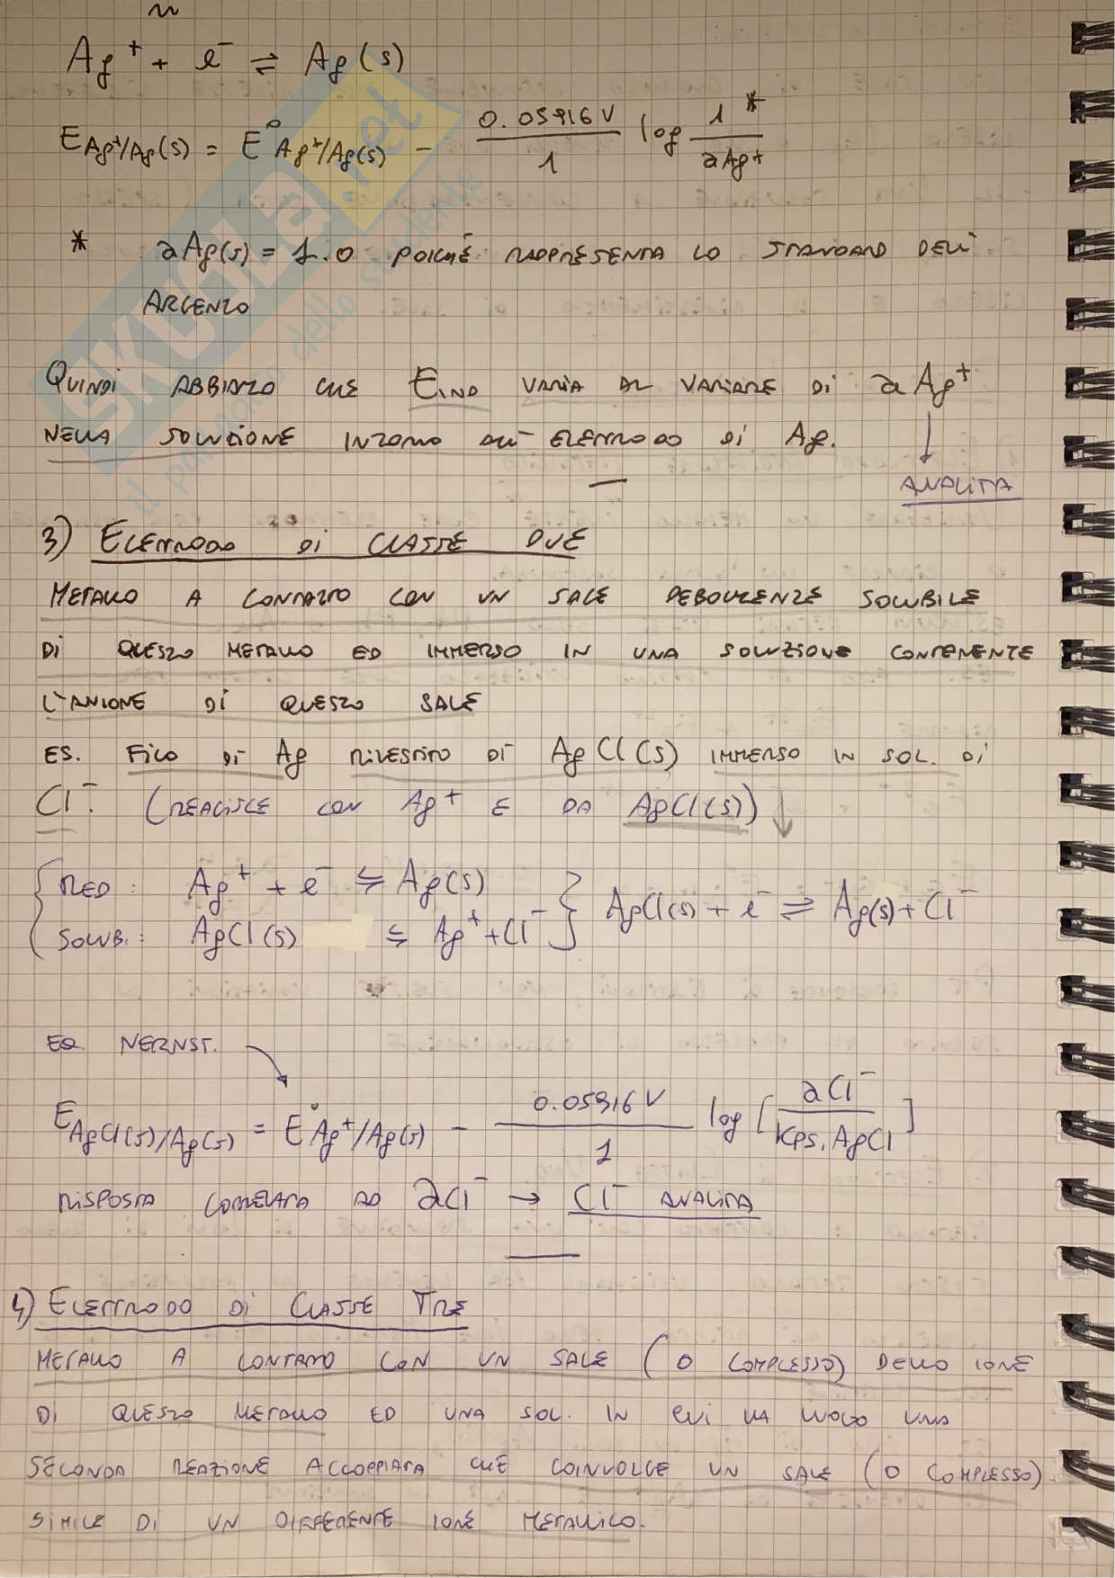 Ag⁺ + e⁻ ⇌ Ag(s)
E Ag⁺/Ag(s) = E° Ag⁺/Ag(s) - 0.05916 V / 1 log 1 / aAg⁺ *
* aAg(s) = 1.0 POICHÉ RAPPRESENTA LO STANDARD DELL'
ARGENTO
QUINDI ABBIAMO CHE EIND VARIA AL VARIARE DI aAg⁺
NELLA SOLUZIONE INTORNO ALL'ELETTRODO DI Ag.
ANALITA
3) ELETTRODO DI CLASSE DUE
METALLO A CONTATTO CON UN SALE DEBOLMENTE SOLUBILE
DI QUESTO METALLO ED IMMERSO IN UNA SOLUZIONE CONTENENTE
L'ANIONE DI QUESTO SALE
ES. FILO DI Ag RIVESTITO DI AgCl(s) IMMERSO IN SOL. DI
Cl⁻. (REAGISCE CON Ag⁺ E DA AgCl(s)) ↓
RED: Ag⁺ + e⁻ ⇋ Ag(s)
SOLUB.: AgCl(s) ⇋ Ag⁺ + Cl⁻ } AgCl(s) + e⁻ ⇌ Ag(s) + Cl⁻
EQ. NERNST.
E AgCl(s)/Ag(s) = E° Ag⁺/Ag(s) - 0.05916 V / 1 log [aCl⁻ / Kps, AgCl]
RISPOSTA CORRELATA AD aCl⁻ → Cl⁻ ANALITA
4) ELETTRODO DI CLASSE TRE
METALLO A CONTATTO CON UN SALE (O COMPLESSO) DELLO IONE
DI QUESTO METALLO ED UNA SOL. IN CUI HA LUOGO UNA
SECONDA REAZIONE ACCOPPIATA CHE COINVOLGE UN SALE (O COMPLESSO)
SIMILE DI UN DIFFERENTE IONE METALLICO.
SKUOLA.net
il portale dello studente